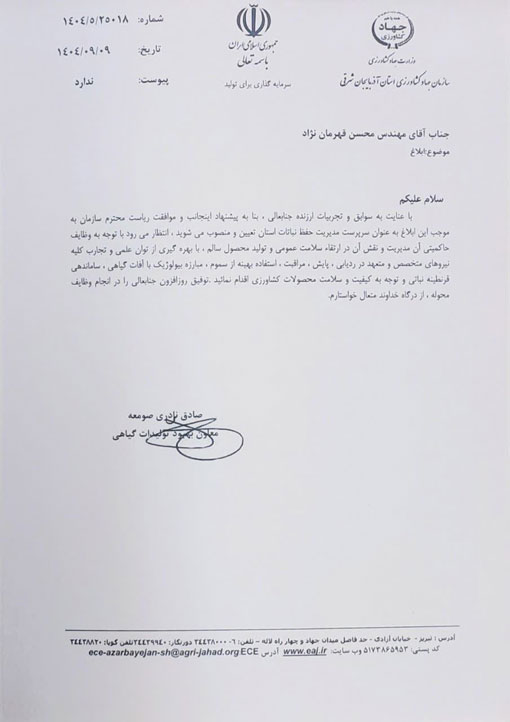 شماره: ۱۴۰۴/۵/۲۵۰۱۸
تاریخ: ۱۴۰۴/۰۹/۰۹
پیوست: ندارد
جمهوری اسلامی ایران
باسمه تعالی
سرمایه گذاری برای تولید
جهاد
کشاورزی
وزارت جهاد کشاورزی
سازمان جهاد کشاورزی استان آذربایجان شرقی
جناب آقای مهندس محسن قهرمان نژاد
موضوع:ابلاغ
سلام علیکم
با عنایت به سوابق و تجربیات ارزنده جنابعالی ، بنا به پیشنهاد اینجانب و موافقت ریاست محترم سازمان به
موجب این ابلاغ به عنوان سرپرست مدیریت حفظ نباتات استان تعیین و منصوب می شوید ، انتظار می رود با توجه به وظایف
حاکمیتی آن مدیریت و نقش آن در ارتقاء سلامت عمومی و تولید محصول سالم ، با بهره گیری از توان علمی و تجارب کلیه
نیروهای متخصص و متعهد در ردیابی ، پایش ، مراقبت ، استفاده بهینه از سموم ، مبارزه بیولوژیک با آفات گیاهی ، ساماندهی
قرنطینه نباتی و توجه به کیفیت و سلامت محصولات کشاورزی اقدام نمائید .توفیق روزافزون جنابعالی را در انجام وظایف
محوله ، از درگاه خداوند متعال خواستارم.
صادق نادری صومعه
معاون بهبود تولیدات گیاهی
آدرس : تبریز - خیابان آزادی - حد فاصل میدان جهاد و چهار راه لاله - تلفن: ۶-۳۴۴۳۸۰۰۰ دورنگار: ۳۴۴۳۹۹۴۰تلفن گویا: ۳۴۴۳۸۸۲۰
کد پستی: ۵۱۷۳۸۶۵۹۵۳ وب سایت: www.eaj.ir آدرس ECE ece-azarbayejan-sh@agri-jahad.org